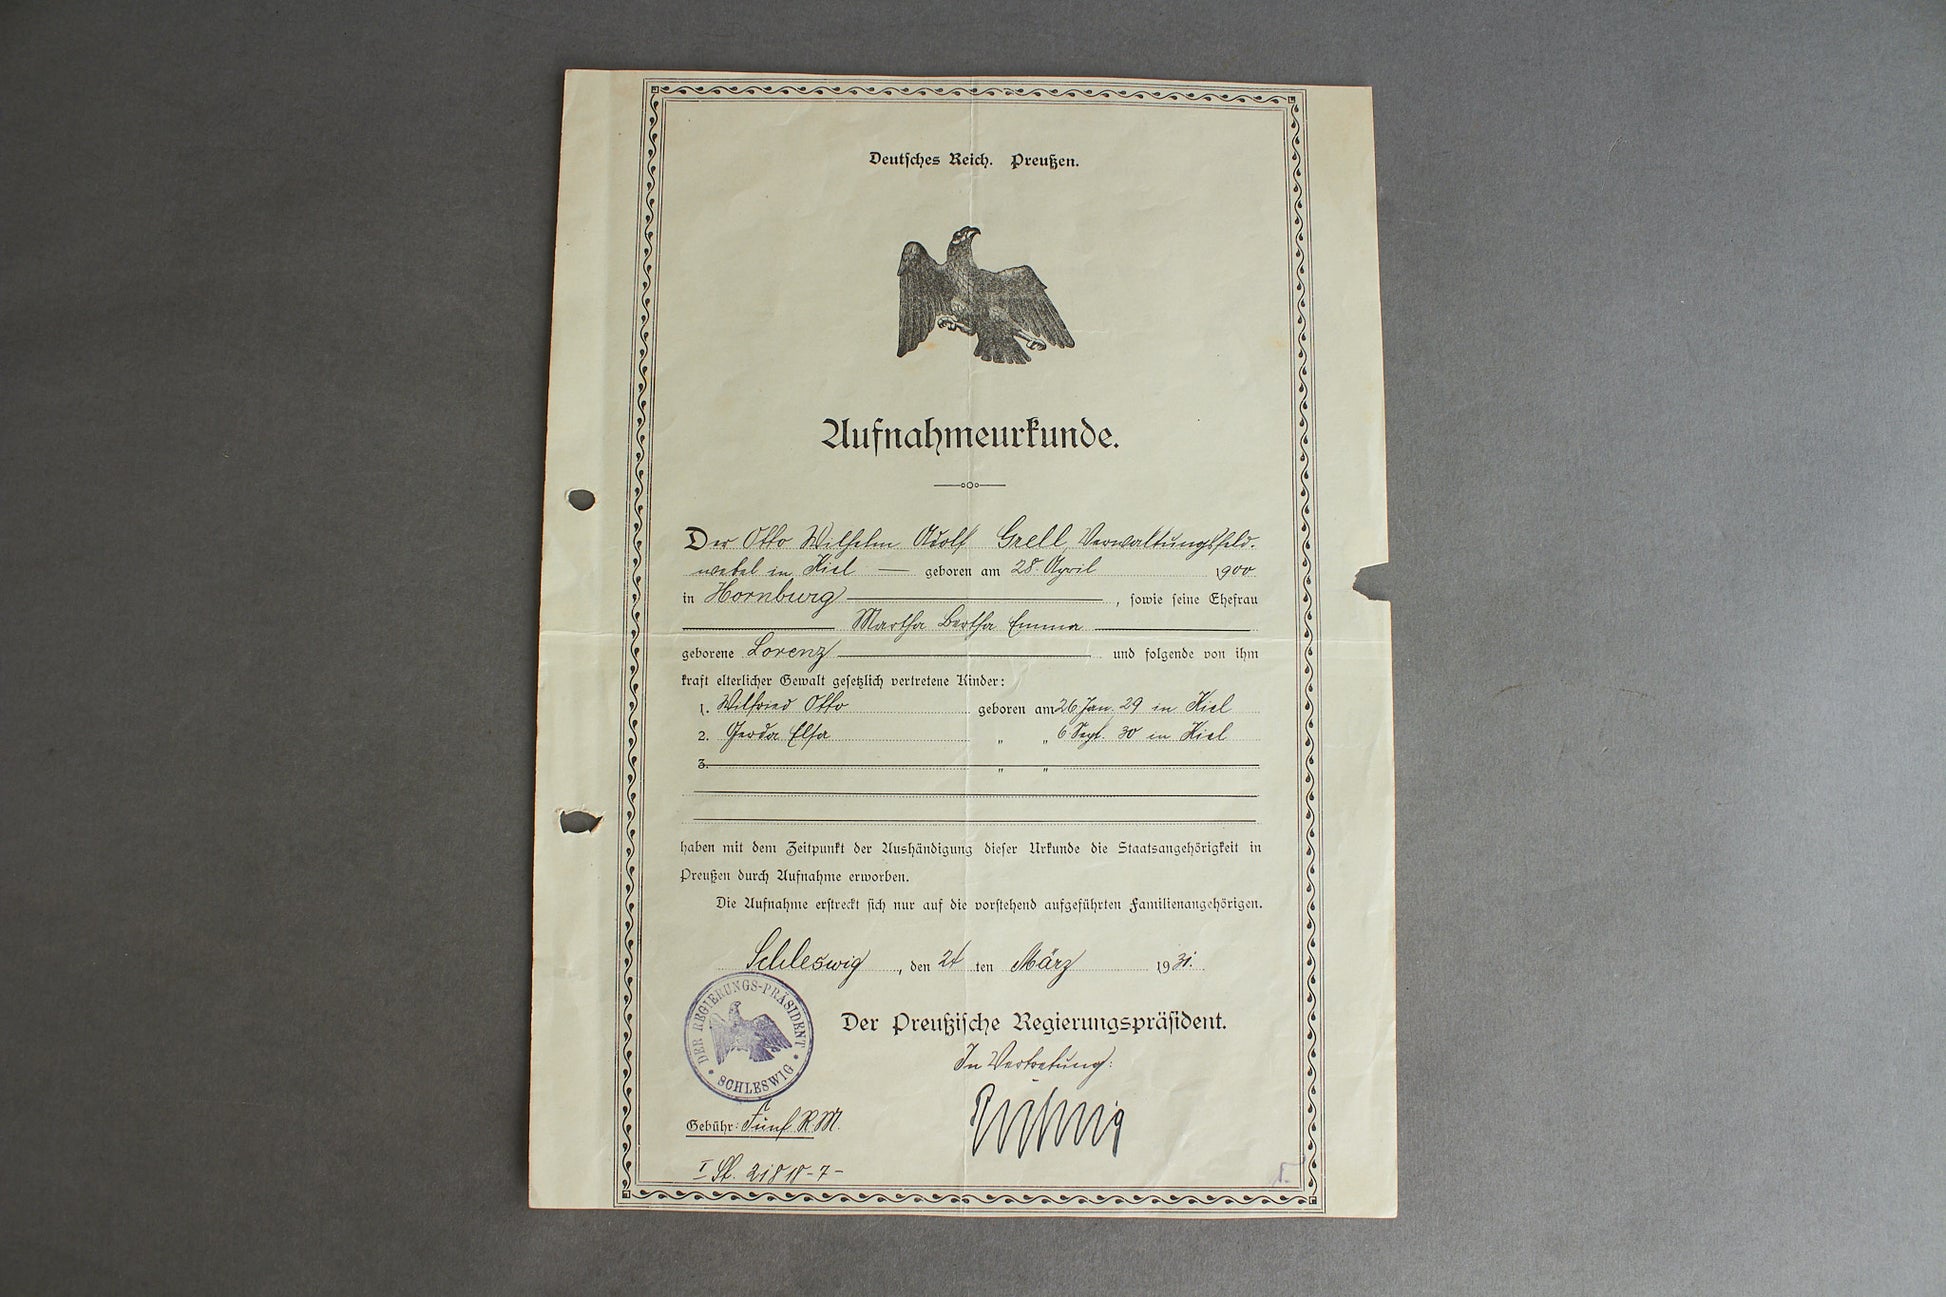 Deutsches Reich. Preußen.
Aufnahmeurkunde.
Der Otto Wilhelm Adolf Grell, Verwaltungsfeld-
webel in Kiel — geboren am 28. April 1900
in Hornburg, sowie seine Ehefrau
Martha Bertha Emma
geborene Lorenz und folgende von ihm
kraft elterlicher Gewalt gesetzlich vertretene Kinder:
1. Wilfried Otto geboren am 26 Jan. 29 in Kiel
2. Gerda Elsa " " 6 Sept. 30 in Kiel
3. " "
haben mit dem Zeitpunkt der Aushändigung dieser Urkunde die Staatsangehörigkeit in
Preußen durch Aufnahme erworben.
Die Aufnahme erstreckt sich nur auf die vorstehend aufgeführten Familienangehörigen.
Schleswig, den ten März 1931.
DER REGIERUNGS-PRÄSIDENT
SCHLESWIG
Der Preußische Regierungspräsident.
In Vertretung:
Gebühr: Fünf RM.
I St. 21818-7-